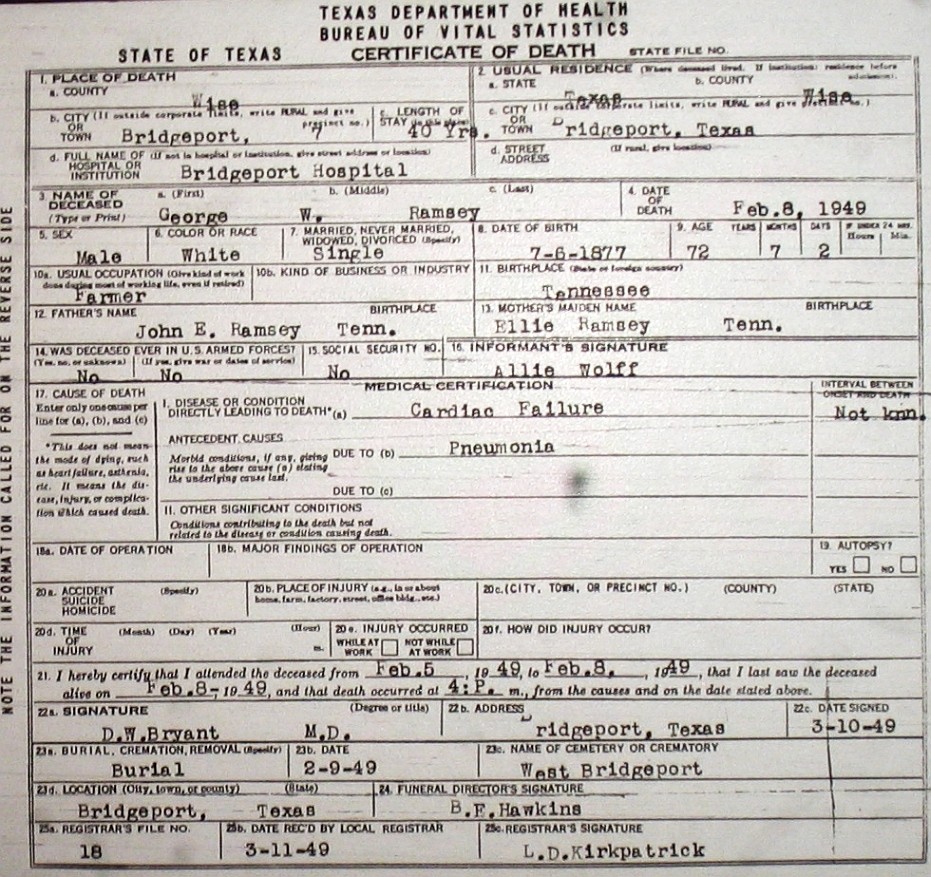 TEXAS DEPARTMENT OF HEALTH
BUREAU OF VITAL STATISTICS
STATE OF TEXAS CERTIFICATE OF DEATH STATE FILE NO.
1. PLACE OF DEATH
a. COUNTY
Wise
2. USUAL RESIDENCE (Where deceased lived. If institution: residence before admission).
a. STATE b. COUNTY
Texas Wise
b. CITY (If outside corporate limits, write RURAL and give precinct no.)
OR
TOWN Bridgeport, 7
c. LENGTH OF
STAY (in this place)
40 Yrs.
c. CITY (If outside corporate limits, write RURAL and give precinct no.)
OR
TOWN Bridgeport, Texas
d. FULL NAME OF (If not in hospital or institution, give street address or location)
HOSPITAL OR
INSTITUTION Bridgeport Hospital
d. STREET (If rural, give location)
ADDRESS
3 NAME OF a. (First) b. (Middle) c. (Last)
DECEASED
(Type or Print) George W. Ramsey
4. DATE
OF
DEATH Feb.8, 1949
5. SEX
Male
6. COLOR OR RACE
White
7. MARRIED, NEVER MARRIED,
WIDOWED, DIVORCED (Specify)
Single
8. DATE OF BIRTH
7-6-1877
9. AGE YEARS MONTHS DAYS IF UNDER 24 HRS.
Hours Min.
72 7 2
10a. USUAL OCCUPATION (Give kind of work
done during most of working life, even if retired)
Farmer
10b. KIND OF BUSINESS OR INDUSTRY
11. BIRTHPLACE (State or foreign country)
Tennessee
12. FATHER'S NAME BIRTHPLACE
John E. Ramsey Tenn.
13. MOTHER'S MAIDEN NAME BIRTHPLACE
Ellie Ramsey Tenn.
14. WAS DECEASED EVER IN U.S. ARMED FORCES?
(Yes, no, or unknown) (If yes, give war or dates of service)
No No
15. SOCIAL SECURITY NO.
No
16. INFORMANT'S SIGNATURE
Allie Wolff
MEDICAL CERTIFICATION
17. CAUSE OF DEATH
Enter only one cause per
line for (a), (b), and (c)
*This does not mean
the mode of dying, such
as heart failure, asthenia,
etc. It means the dis-
ease, injury, or complica-
tion which caused death.
I. DISEASE OR CONDITION
DIRECTLY LEADING TO DEATH*(a) Cardiac Failure
INTERVAL BETWEEN
ONSET AND DEATH
Not knn.
ANTECEDENT CAUSES
Morbid conditions, if any, giving
rise to the above cause (a) stating
the underlying cause last.
DUE TO (b) Pneumonia
DUE TO (c)
II. OTHER SIGNIFICANT CONDITIONS
Conditions contributing to the death but not
related to the disease or condition causing death.
18a. DATE OF OPERATION
18b. MAJOR FINDINGS OF OPERATION
19. AUTOPSY?
YES NO
20a. ACCIDENT (Specify)
SUICIDE
HOMICIDE
20b. PLACE OF INJURY (e.g., in or about
home, farm, factory, street, office bldg., etc.)
20c. (CITY, TOWN, OR PRECINCT NO.) (COUNTY) (STATE)
20d. TIME (Month) (Day) (Year) (Hour)
OF
INJURY m.
20e. INJURY OCCURRED
WHILE AT WORK NOT WHILE AT WORK
20f. HOW DID INJURY OCCUR?
21. I hereby certify that I attended the deceased from Feb.5, 1949, to Feb.8, 1949, that I last saw the deceased
alive on Feb.8- 1949, and that death occurred at 4:P. m., from the causes and on the date stated above.
22a. SIGNATURE (Degree or title)
D.W.Bryant M.D.
22b. ADDRESS
Bridgeport, Texas
22c. DATE SIGNED
3-10-49
23a. BURIAL, CREMATION, REMOVAL (Specify)
Burial
23b. DATE
2-9-49
23c. NAME OF CEMETERY OR CREMATORY
West Bridgeport
23d. LOCATION (City, town, or county) (State)
Bridgeport, Texas
24. FUNERAL DIRECTOR'S SIGNATURE
B.F.Hawkins
25a. REGISTRAR'S FILE NO.
18
25b. DATE REC'D BY LOCAL REGISTRAR
3-11-49
25c. REGISTRAR'S SIGNATURE
L.D.Kirkpatrick
NOTE THE INFORMATION CALLED FOR ON THE REVERSE SIDE